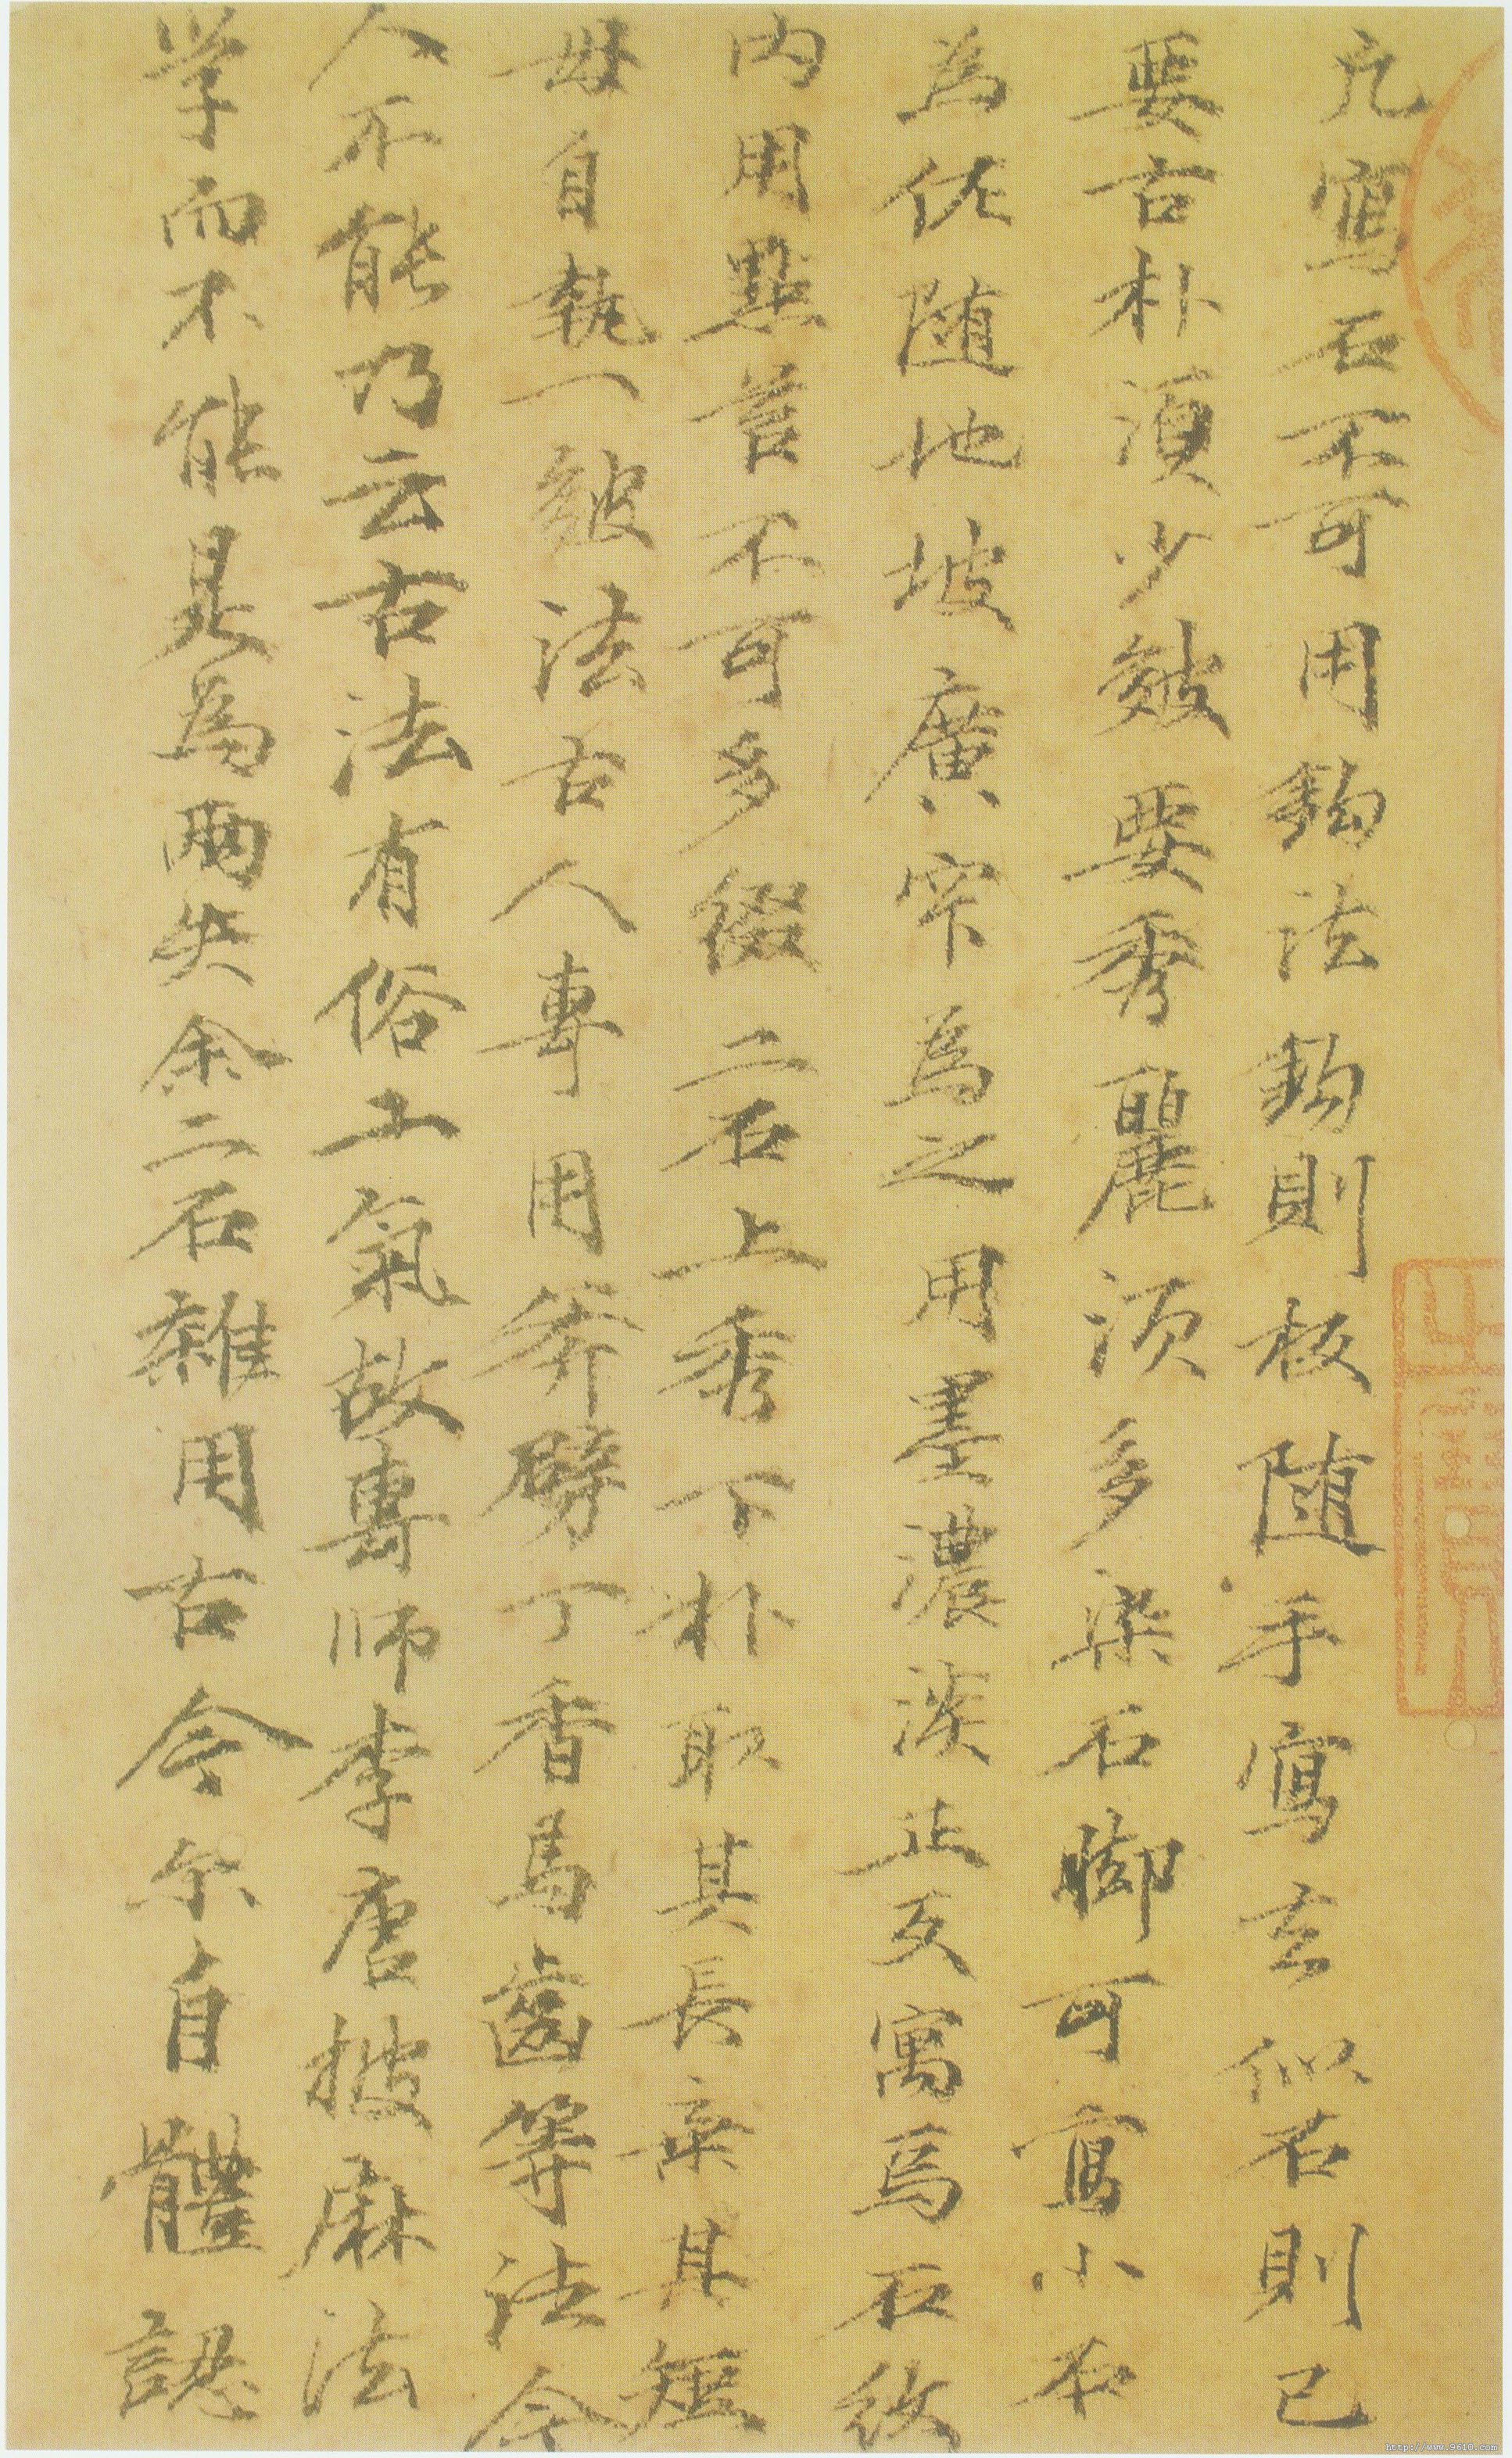 凢寫石不可用鈎法鈎則板随手寫去似石則已
要古朴湏少皴要秀麗須多染石脚可寫小木
為伍随地坡廣窄為之用墨濃淡正反寓焉石紋
內用點苔不可多綴二石上秀下朴取其長棄其短
毋自執一皴法古人專用斧劈丁香馬齒等法今
人不能乃云古法有俗工氣故專師李唐披麻法
学而不能是為兩失余二石雜用古今尓自體認
http://www.9610.com